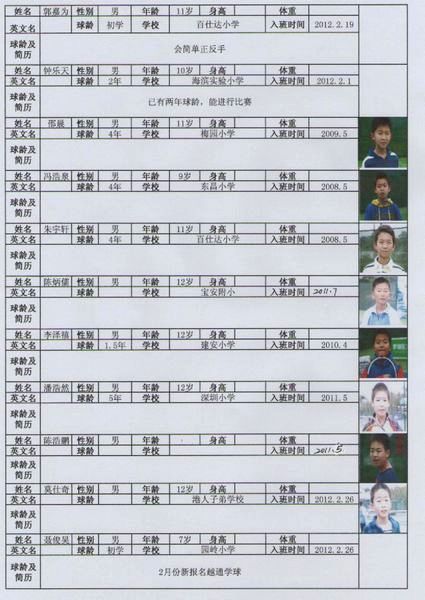 姓名 郭嘉为 性别 男 年龄 11岁 身高 体重
英文名 球龄 初学 学校 百仕达小学 入班时间 2012.2.19
球龄及简历 会简单正反手
姓名 钟乐天 性别 男 年龄 10岁 身高 体重
英文名 球龄 2年 学校 海滨实验小学 入班时间 2012.2.1
球龄及简历 已有两年球龄，能进行比赛
姓名 邵晨 性别 男 年龄 11岁 身高 体重
英文名 球龄 4年 学校 梅园小学 入班时间 2009.5
球龄及简历
姓名 冯浩泉 性别 男 年龄 9岁 身高 体重
英文名 球龄 4年 学校 东昌小学 入班时间 2008.5
球龄及简历
姓名 朱宇轩 性别 男 年龄 11岁 身高 体重
英文名 球龄 4年 学校 百仕达小学 入班时间 2008.5
球龄及简历
姓名 陈炳儒 性别 男 年龄 12岁 身高 体重
英文名 球龄 学校 宝安附小 入班时间 2011.7
球龄及简历
姓名 李泽禧 性别 男 年龄 12岁 身高 体重
英文名 球龄 1.5年 学校 建安小学 入班时间 2010.4
球龄及简历
姓名 潘浩然 性别 男 年龄 12岁 身高 体重
英文名 球龄 5年 学校 深圳小学 入班时间 2011.5
球龄及简历
姓名 陈浩鹏 性别 男 年龄 身高 体重
英文名 球龄 学校 入班时间 2011.5
球龄及简历
姓名 莫仕奇 性别 男 年龄 12岁 身高 体重
英文名 球龄 学校 港人子弟学校 入班时间 2012.2.26
球龄及简历
姓名 聂俊昊 性别 男 年龄 7岁 身高 体重
英文名 球龄 初学 学校 园岭小学 入班时间 2012.2.26
球龄及简历 2月份新报名越通学球